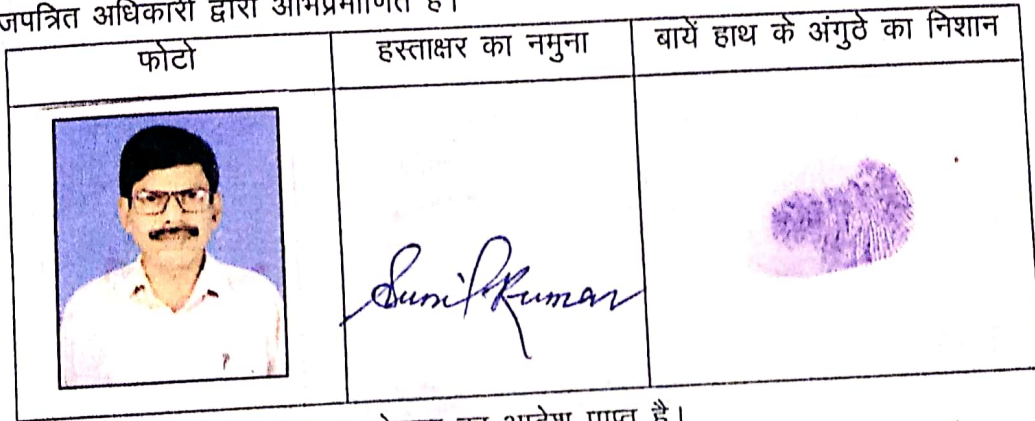 जपत्रित अधिकारी द्वारा अभिप्रमाणित है।
फोटो
हस्ताक्षर का नमुना
बायें हाथ के अंगुठे का निशान
Sunil Kumar
आदेश प्राप्त है।